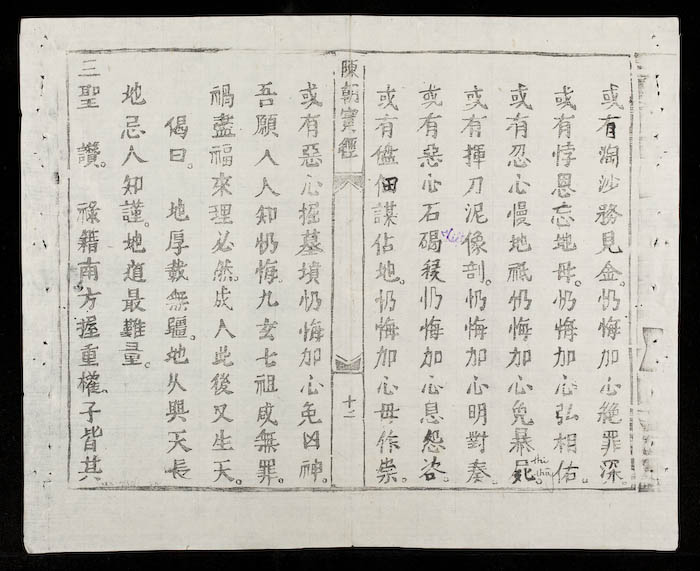 或有淘沙務見金。忉悔加心絶罪深。
或有悖恩忘地母。忉悔加心弘相佑。
或有忍心慢地祇忉悔加心免暴屍。
thi
或有揮刀泥像剖。忉悔加心明對奏。
或有惡心石碣 忉悔加心息怨咨。
或有盤佃謀佔地。忉悔加心毋作祟。
陳朝寳經 十二
或有惡心掘墓墳忉悔加心免凶神。
吾願人人知忉悔。九玄七祖咸無罪。
禍盡福來理必然。成人此後又生天。
偈曰。地厚載無疆。地久與天長
地忌人知謹。地道最難量。
三聖讚。祿籍南方握重權。子皆其